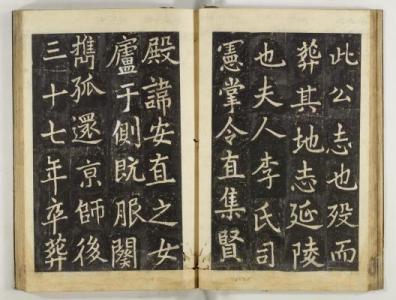 此公志也歿而
葬其地志延陵
也夫人李氏司
憲掌令直集賢
殿諱安直之女
廬于側既服闋
擕孤還京師後
三十七年卒葬